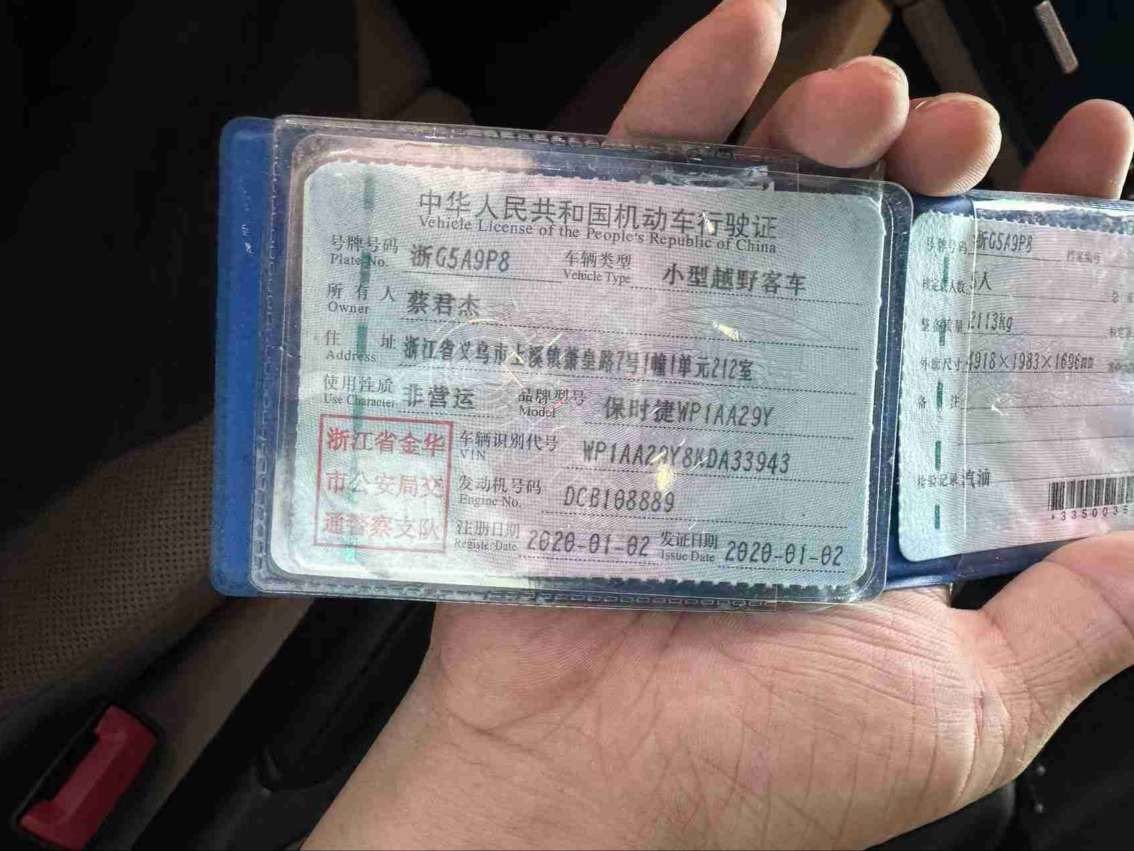 中华人民共和国机动车行驶证
Vehicle License of the People's Republic of China
号牌号码 浙G5A9P8 车辆类型 小型越野客车
Plate No. Vehicle Type
所有人 蔡君杰
Owner
住址 浙江省义乌市上溪镇萧皇路7号1幢1单元212室
Address
使用性质 非营运 品牌型号 保时捷WP1AA29Y
Use Character Model
浙江省金华
市公安局交
通警察支队
车辆识别代号 WP1AA29Y8KDA33943
VIN
发动机号码 DCB108889
Engine No.
注册日期 2020-01-02 发证日期 2020-01-02
Register Date Issue Date
号牌号码 浙G5A9P8 档案编号
核定载人数 5人
整备质量 2113kg
外廓尺寸 4918×1983×1696mm
备注
检验记录 汽油